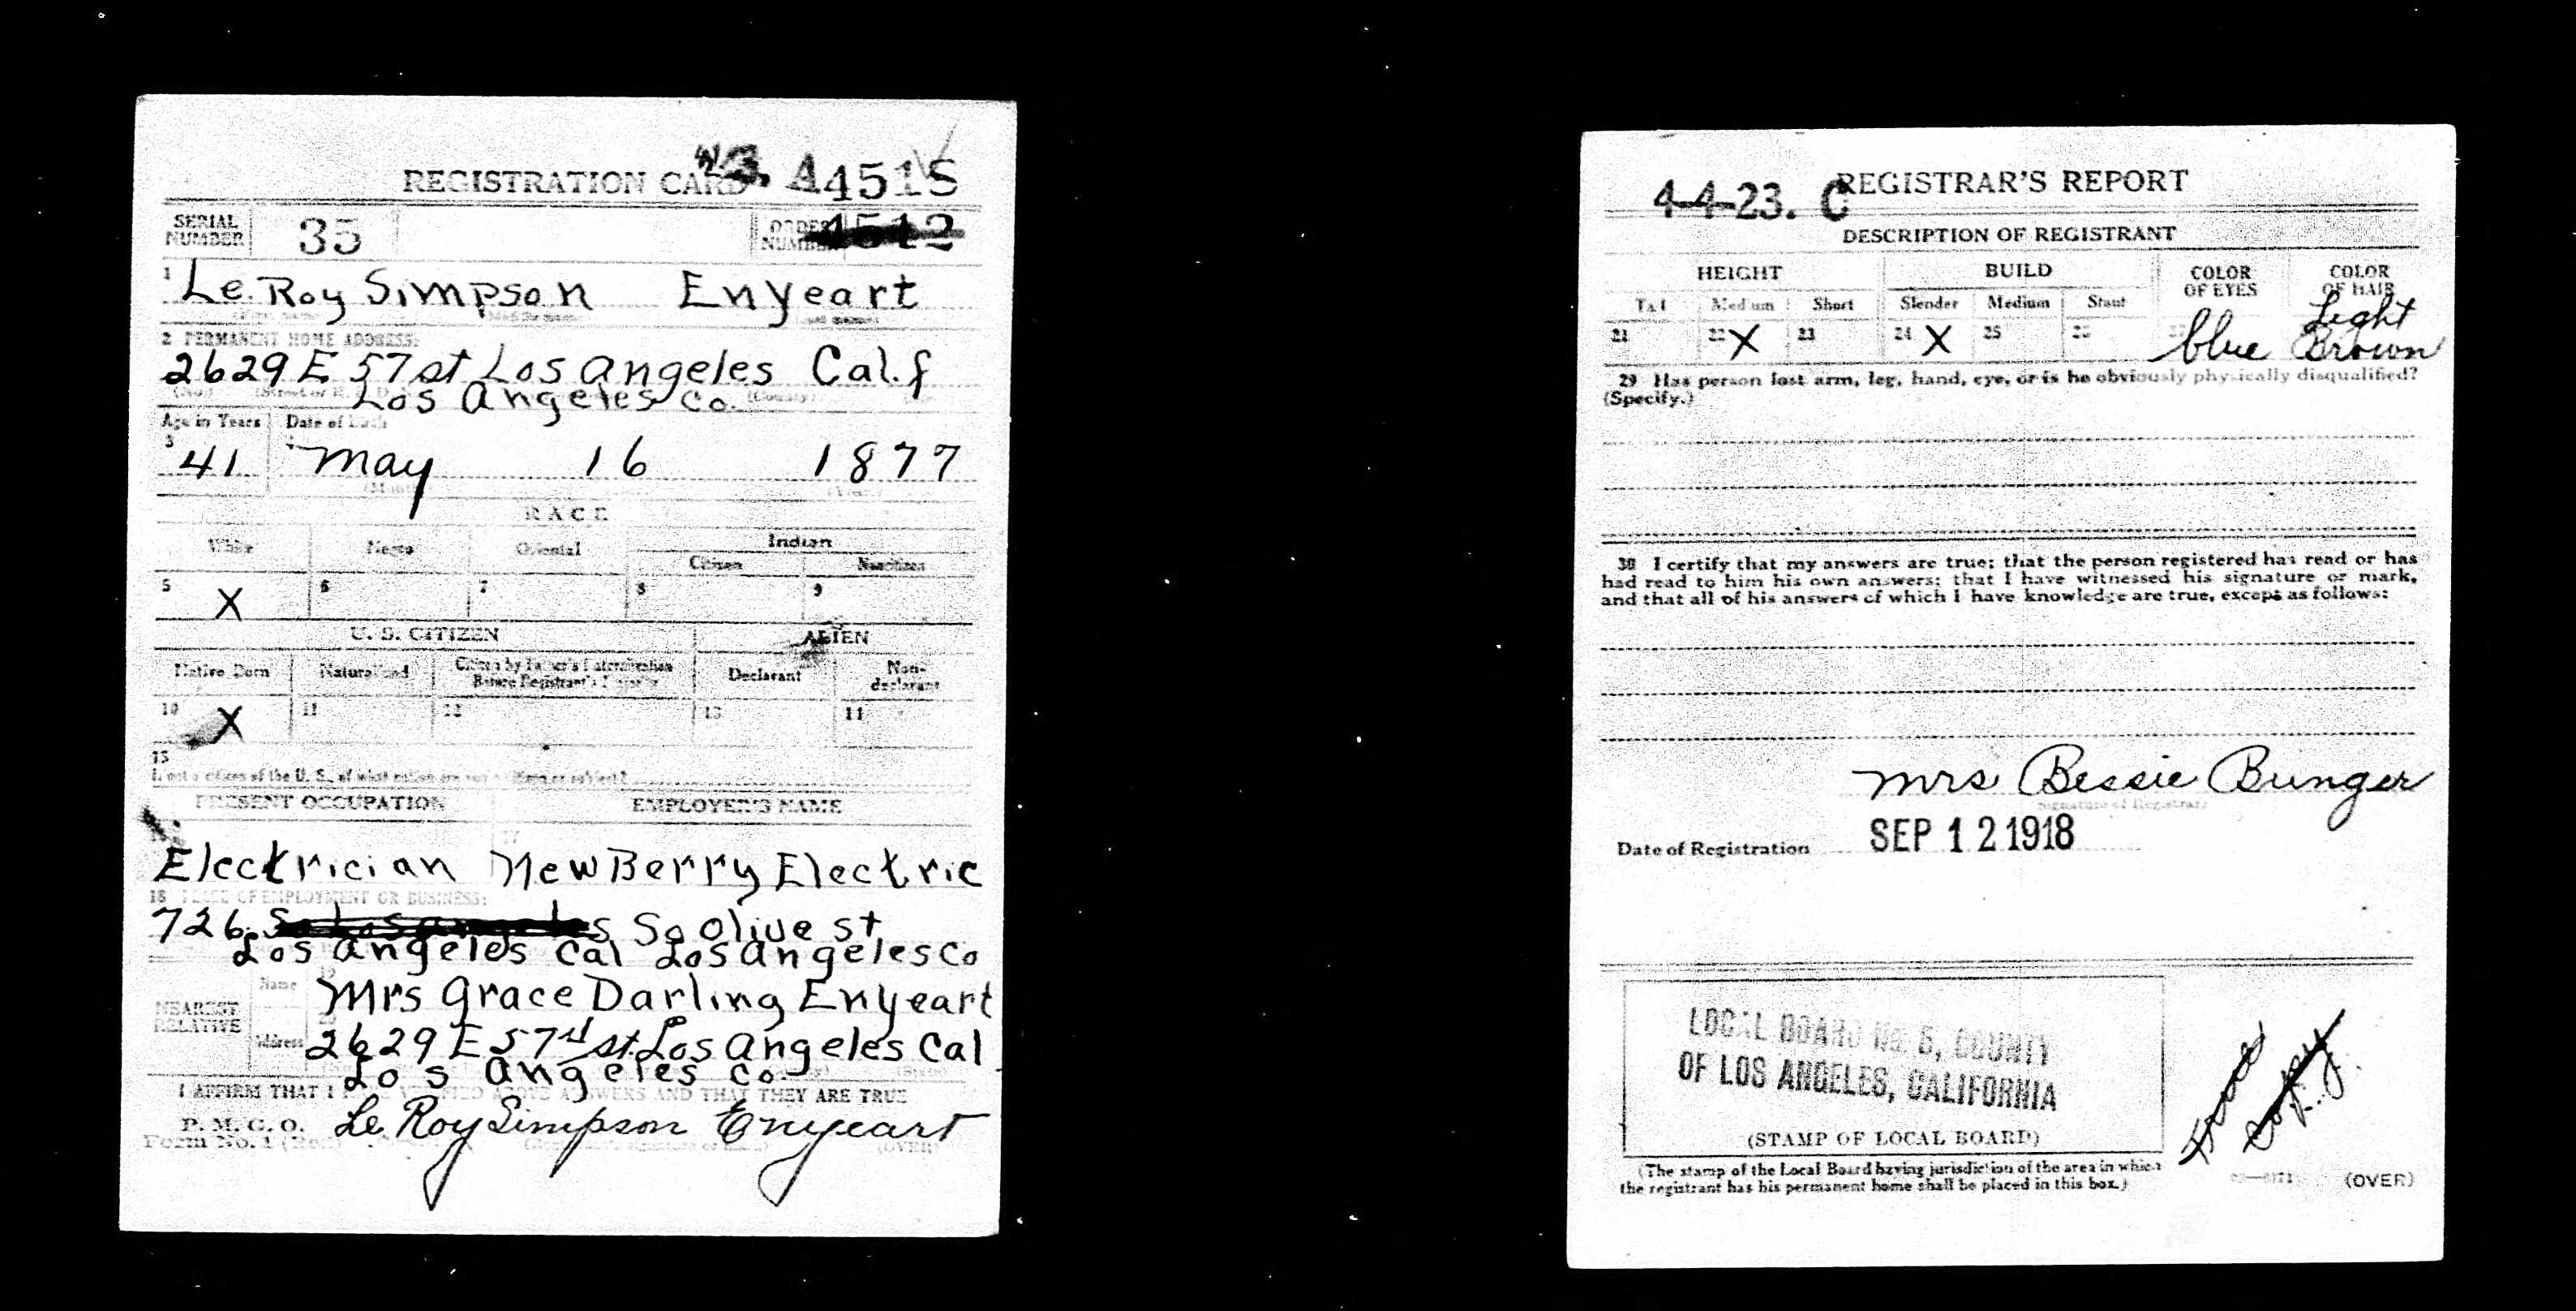 REGISTRATION CARD A4515
SERIAL NUMBER 35 ORDER NUMBER 1512
1 Le Roy Simpson Enyeart
2 PERMANENT HOME ADDRESS:
2629 E 57 st Los Angeles Cal.f
Los Angeles Co.
(County)
Age in Years Date of Birth
3 41 May 16 1877
RACE
White Negro Oriental Indian
Citizen Noncitizen
5 X 6 7 8 9
U. S. CITIZEN ALIEN
Native Born Naturalized Citizen by Father's Naturalization Before Registrant's Declarant Non-declarant
10 X 11 12 13 14
15
If not a citizen of the U. S., of what nation are you a citizen or subject?
PRESENT OCCUPATION EMPLOYER'S NAME
17
Electrician New Berry Electric
18 PLACE OF EMPLOYMENT OR BUSINESS:
726 So Los angeles So Olive st
Los Angeles Cal Los Angeles Co
NEAREST RELATIVE Name Mrs Grace Darling Enyeart
Address 2629 E 57th st. Los Angeles Cal
Los Angeles Co.
I AFFIRM THAT I HAVE VERIFIED ABOVE ANSWERS AND THAT THEY ARE TRUE
P. M. G. O.
Form No. 1 Le Roy Simpson Enyeart
(OVER)
4-4-23. C REGISTRAR'S REPORT
DESCRIPTION OF REGISTRANT
HEIGHT BUILD COLOR OF EYES COLOR OF HAIR
Tall Medium Short Slender Medium Stout
21 22 X 23 24 X 25 26 27 blue Light Brown
29 Has person lost arm, leg, hand, eye, or is he obviously physically disqualified?
(Specify.)
30 I certify that my answers are true; that the person registered has read or has
had read to him his own answers; that I have witnessed his signature or mark,
and that all of his answers of which I have knowledge are true, except as follows:
Mrs Bessie Bunger
(Signature of Registrar)
Date of Registration SEP 12 1918
LOCAL BOARD No. 5, COUNTY
OF LOS ANGELES, CALIFORNIA
(STAMP OF LOCAL BOARD)
(The stamp of the Local Board having jurisdiction of the area in which
the registrant has his permanent home shall be placed in this box.)
copy
(OVER)